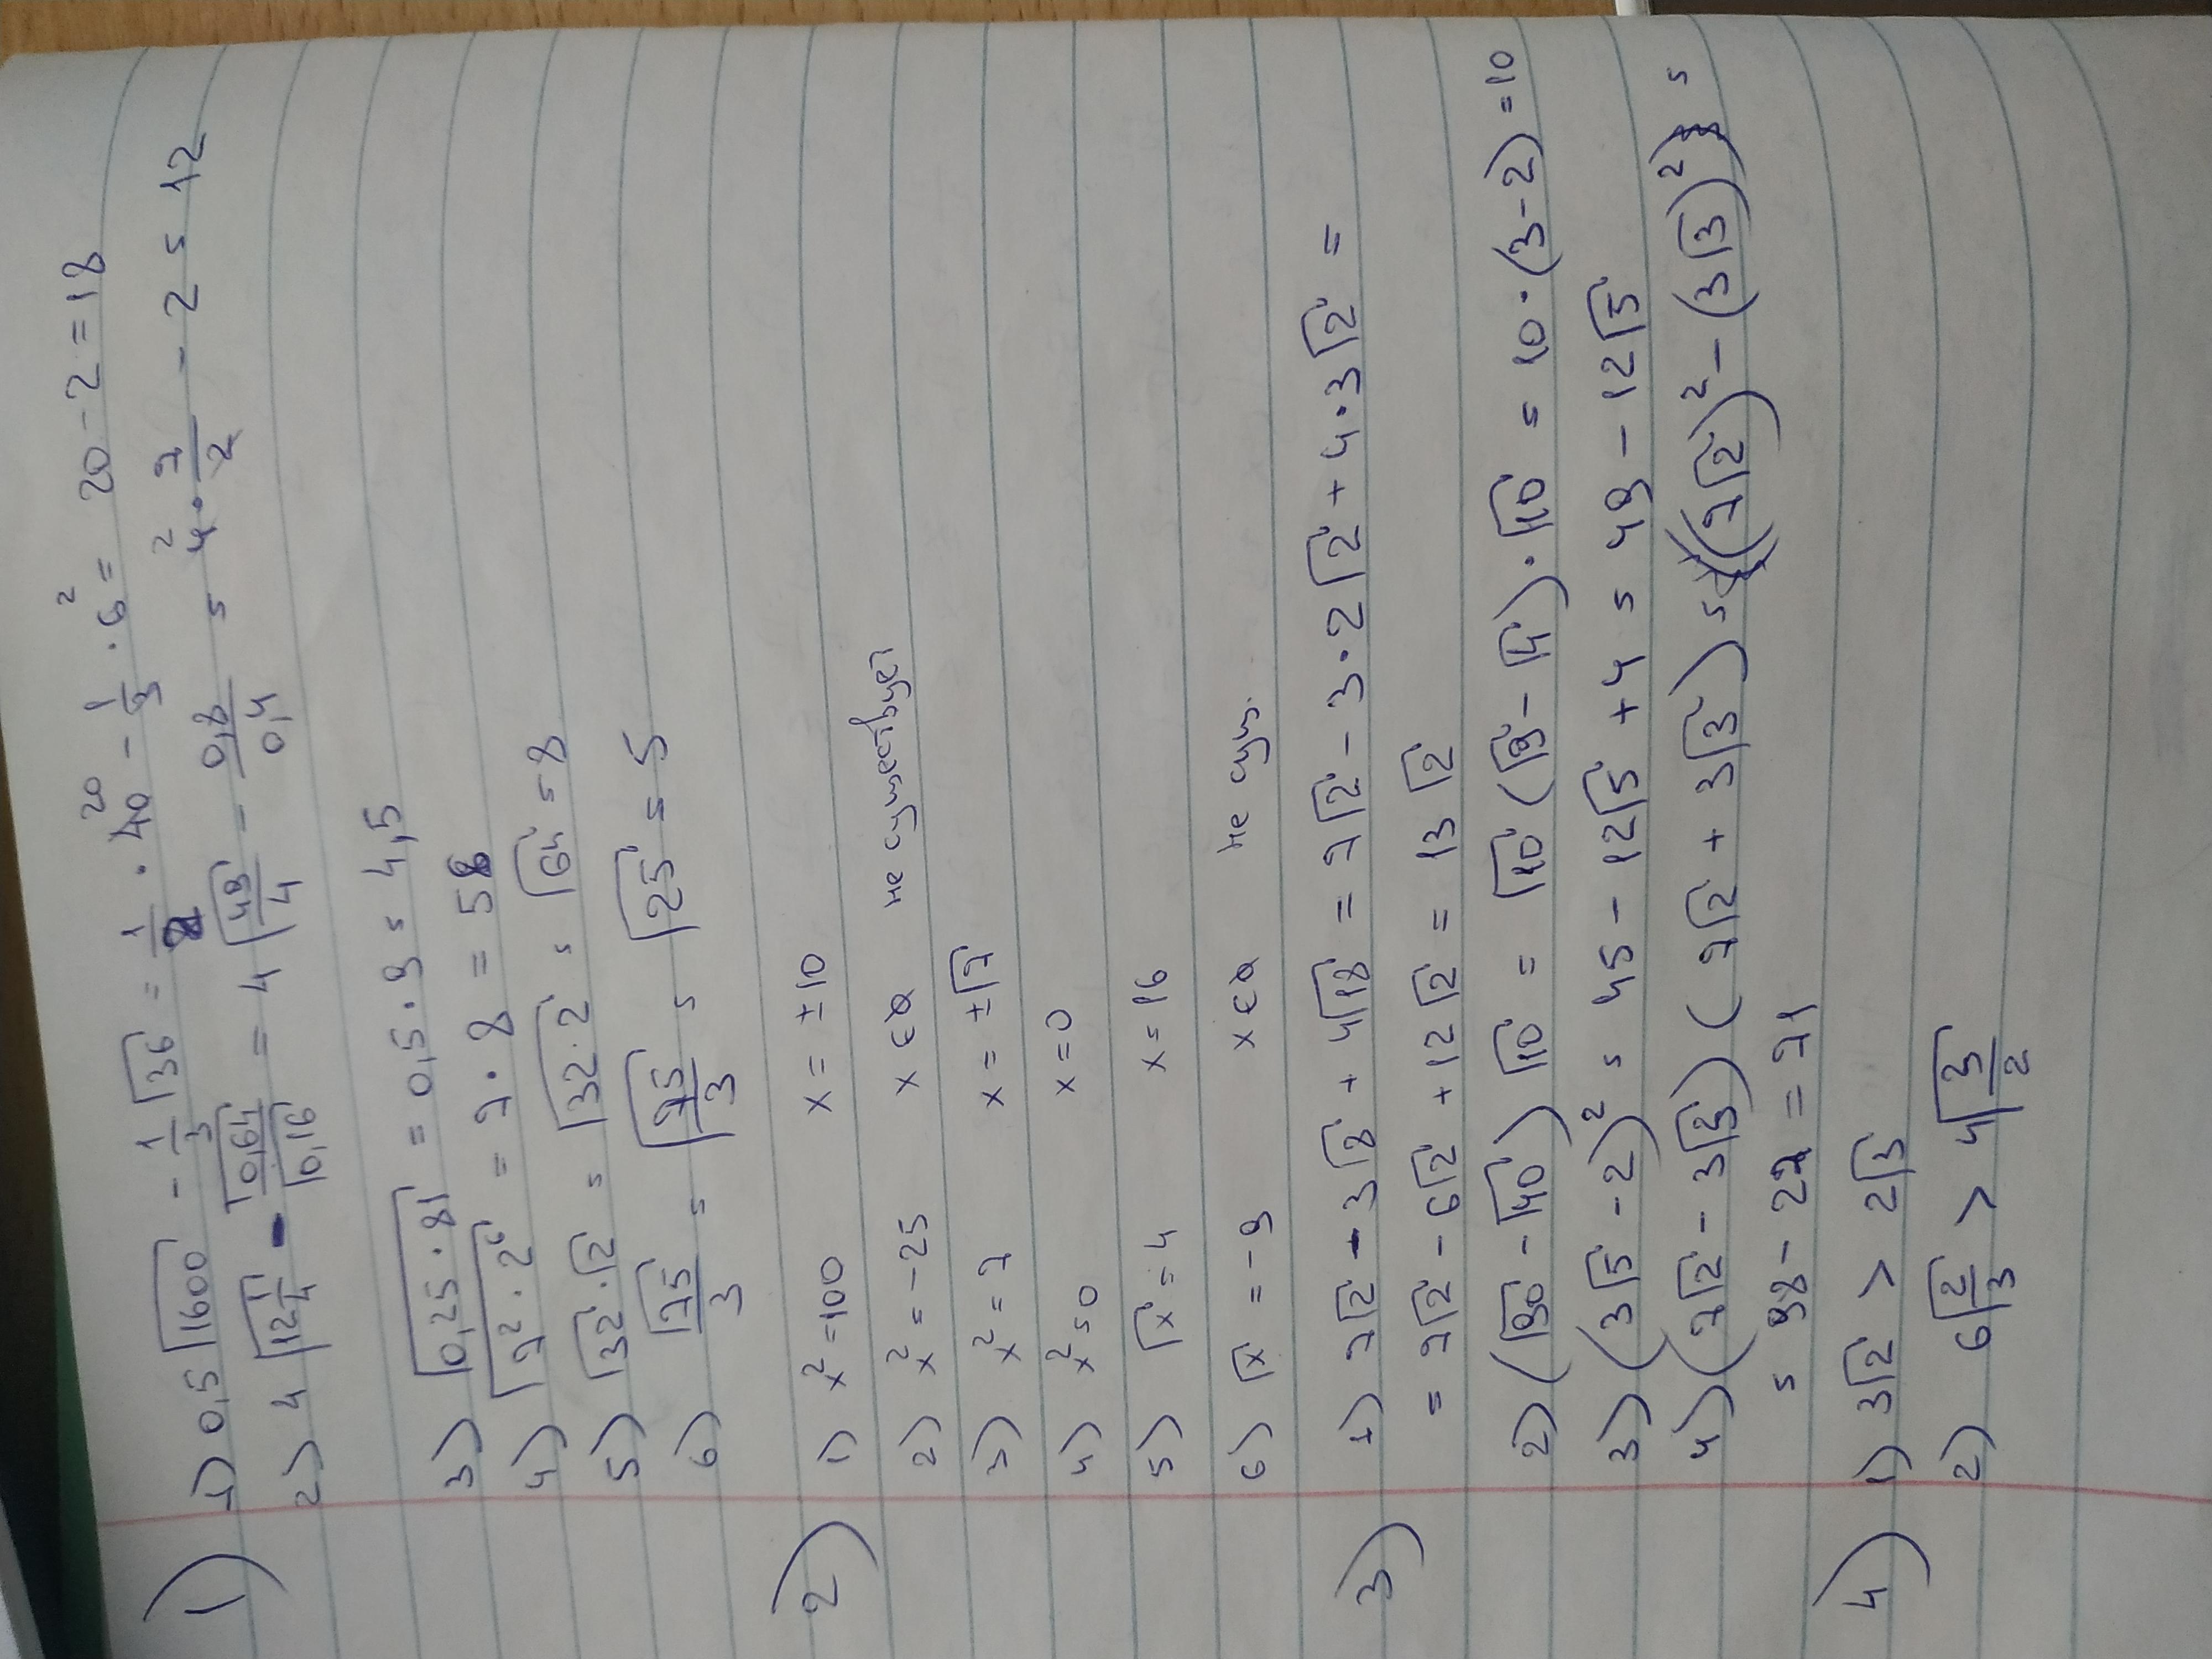 1) 1) 0,5√1600 - 1/3 √36 = 1/2 · 40 20 - 1/3 · 6 2 = 20 - 2 = 18
2) 4√(12 1/4) - √0,64/√0,16 = 4√(49/4) - 0,8/0,4 = 4 2 · 7/2 - 2 = 12
3) √(0,25 · 81) = 0,5 · 9 = 4,5
4) √(7² · 2⁶) = 7 · 8 = 56
5) √32 · √2 = √(32 · 2) = √64 = 8
6) √75/3 = √(75/3) = √25 = 5
2) 1) x² = 100 x = ±10
2) x² = -25 x ∈ ∅ не существует
3) x² = 7 x = ±√7
4) x² = 0 x = 0
5) √x = 4 x = 16
6) √x = -9 x ∈ ∅ не сущ.
3) 1) 7√2 - 3√8 + 4√18 = 7√2 - 3 · 2√2 + 4 · 3√2 =
= 7√2 - 6√2 + 12√2 = 13√2
2) (√90 - √40) √10 = √10 (√9 - √4) · √10 = 10 · (3 - 2) = 10
3) (3√5 - 2)² = 45 - 12√5 + 4 = 49 - 12√5
4) (7√2 - 3√3) (7√2 + 3√3) = (7√2)² - (3√3)² =
= 98 - 27 = 71
4) 1) 3√2 > 2√3
2) 6√(2/3) > 4√(3/2)